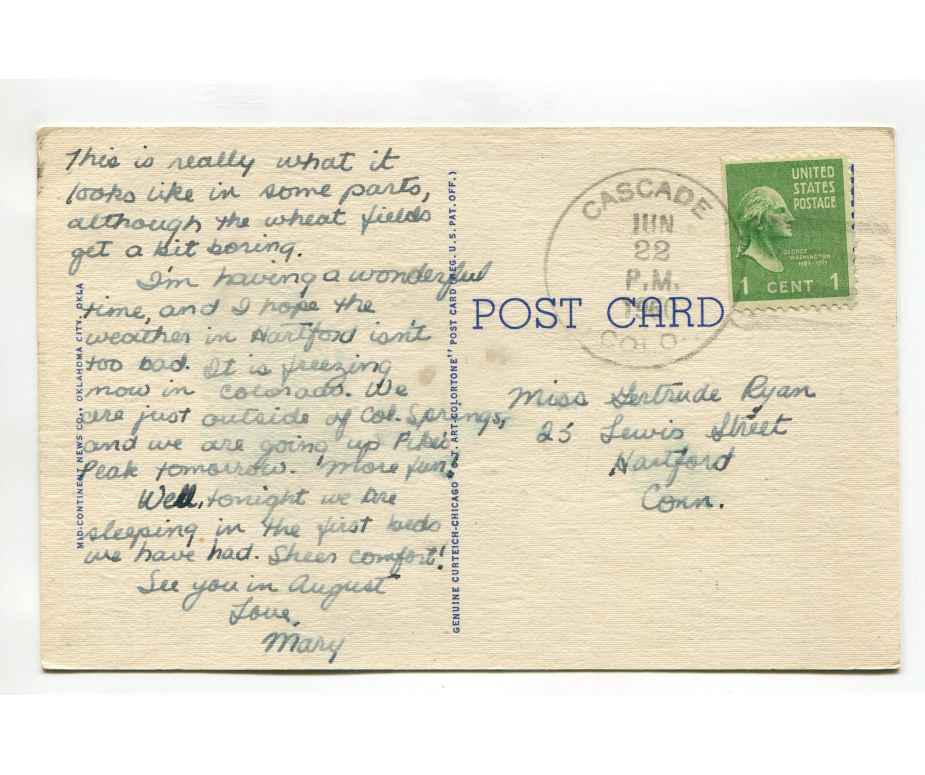 This is really what it
looks like in some parts,
although the wheat fields
get a bit boring.
I'm having a wonderful
time, and I hope the
weather in Hartford isn't
too bad. It is freezing
now in Colorado. We
are just outside of Col. Springs,
and we are going up Pike's
Peak tomorrow. More fun.
Well, tonight we are
sleeping in the first beds
we have had. Sheer comfort!
See you in August
Love,
Mary
MID-CONTINENT NEWS CO., OKLAHOMA CITY, OKLA
GENUINE CURTEICH-CHICAGO "C.T. ART-COLORTONE" POST CARD (REG. U.S. PAT. OFF.)
POST CARD
CASCADE
JUN
22
P.M.
COLO.
UNITED
STATES
POSTAGE
GEORGE
WASHINGTON
1 CENT 1
Miss Gertrude Ryan
25 Lewis Street
Hartford
Conn.